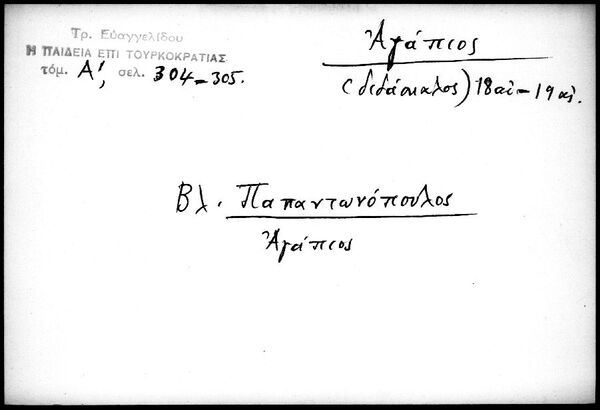 Τρ. Εὐαγγελίδου
Η ΠΑΙΔΕΙΑ ΕΠΙ ΤΟΥΡΚΟΚΡΑΤΙΑΣ
τόμ. Α', σελ. 304-305.
Ἀγάπιος
(διδάσκαλος) 18αἰ - 19αἰ.
Βλ. Παπαντωνόπουλος
Ἀγάπιος